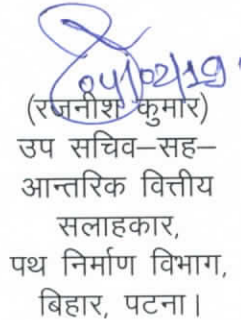 04/02/19
(रजनीश कुमार)
उप सचिव–सह–
आन्तरिक वित्तीय
सलाहकार,
पथ निर्माण विभाग,
बिहार, पटना।